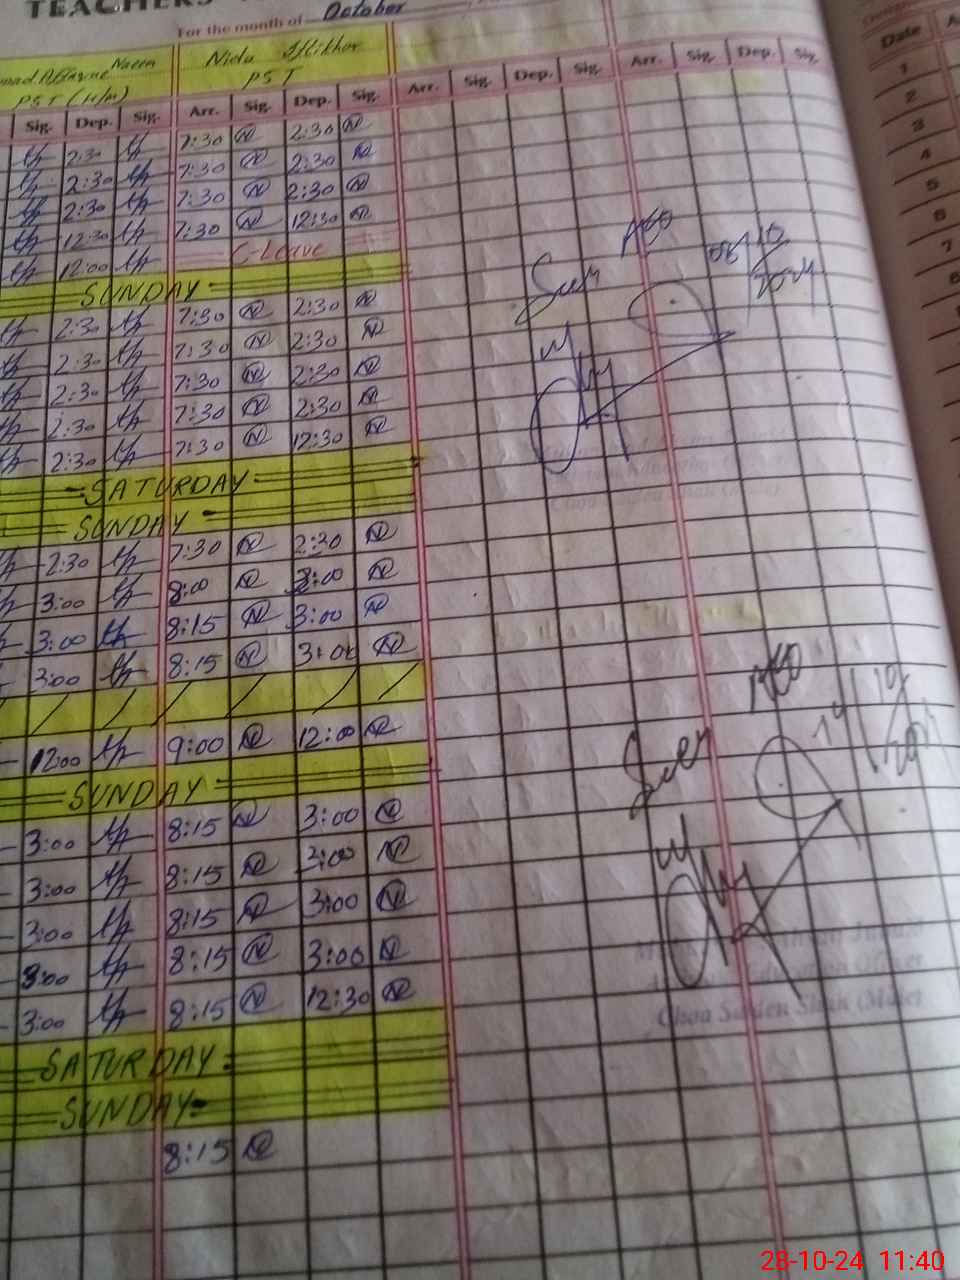 TEACHERS
For the month of October
Naeem Nida Iftikhar
PST (H/M) PST
Sig. Dep. Sig. Arr. Sig. Dep. Sig. Arr. Sig. Dep. Sig. Arr. Sig. Dep. Sig. Date
2:30 7:30 N 2:30 N 1
2:30 7:30 N 2:30 N 2
2:30 7:30 N 2:30 N 3
12:30 7:30 N 12:30 N 4
12:00 C-Leave 5
SUNDAY 6
2:30 7:30 N 2:30 N 7
2:30 7:30 N 2:30 N 8
2:30 7:30 N 2:30 N
2:30 7:30 N 2:30 N
2:30 7:30 N 12:30 N
SATURDAY
SUNDAY
2:30 7:30 N 2:30 N
3:00 8:00 N 3:00 N
3:00 8:15 N 3:00 N
3:00 8:15 N 3:00 N
12:00 9:00 N 12:00 N
SUNDAY
3:00 8:15 N 3:00 N
3:00 8:15 N 3:00 N
3:00 8:15 N 3:00 N
3:00 8:15 N 3:00 N
3:00 8:15 N 12:30 N
SATURDAY
SUNDAY
8:15 N
Seen
Seen
Education Officer
Choa Saiden Shah (Male)
28-10-24 11:40